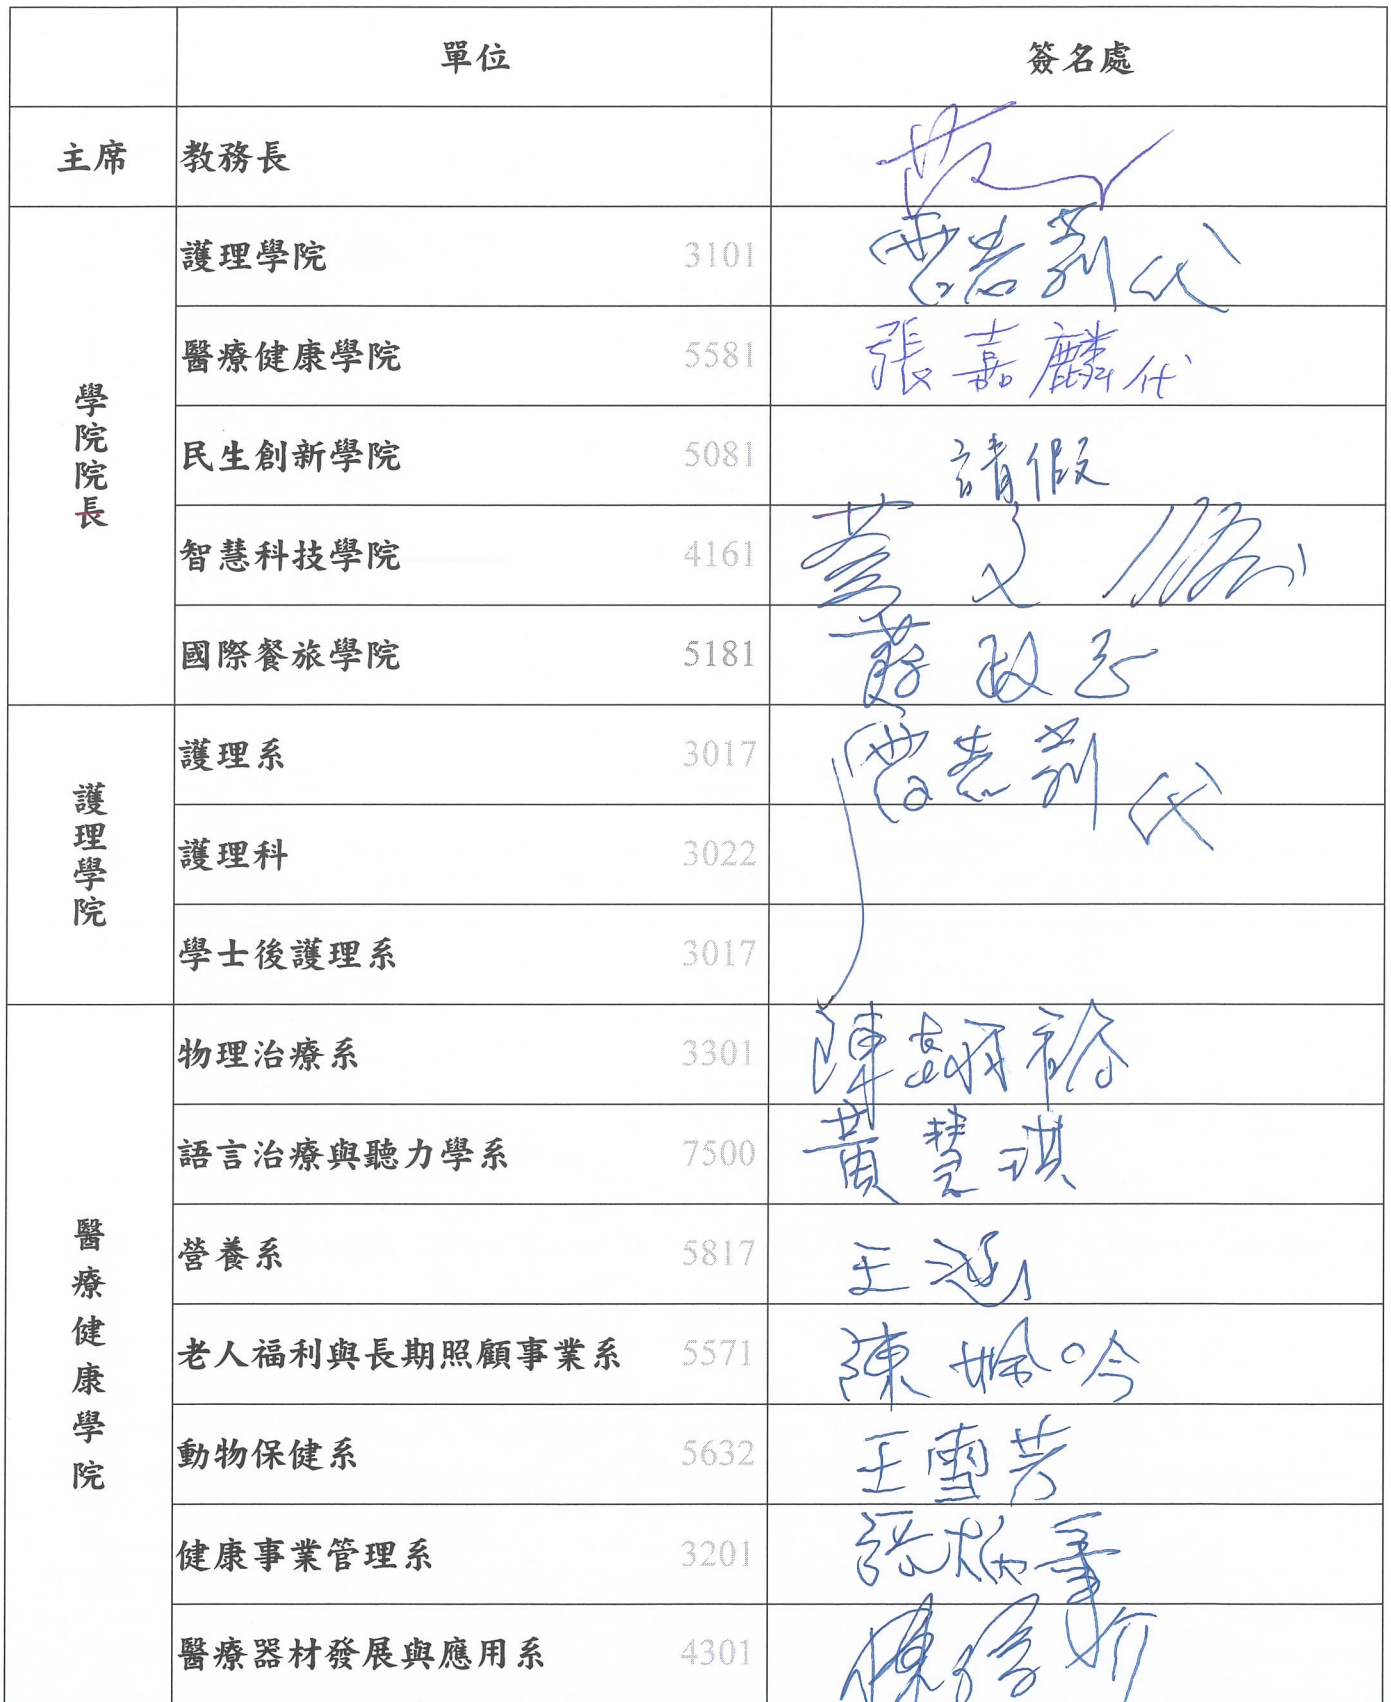 單位 簽名處
主席 教務長
學院院長
護理學院 3101 代
醫療健康學院 5581 張嘉麟代
民生創新學院 5081 請假
智慧科技學院 4161
國際餐旅學院 5181
護理學院
護理系 3017 代
護理科 3022
學士後護理系 3017
醫療健康學院
物理治療系 3301 陳
語言治療與聽力學系 7500 黃慧琪
營養系 5817 王涵
老人福利與長期照顧事業系 5571 陳 吟
動物保健系 5632 王雪芳
健康事業管理系 3201
醫療器材發展與應用系 4301 陳